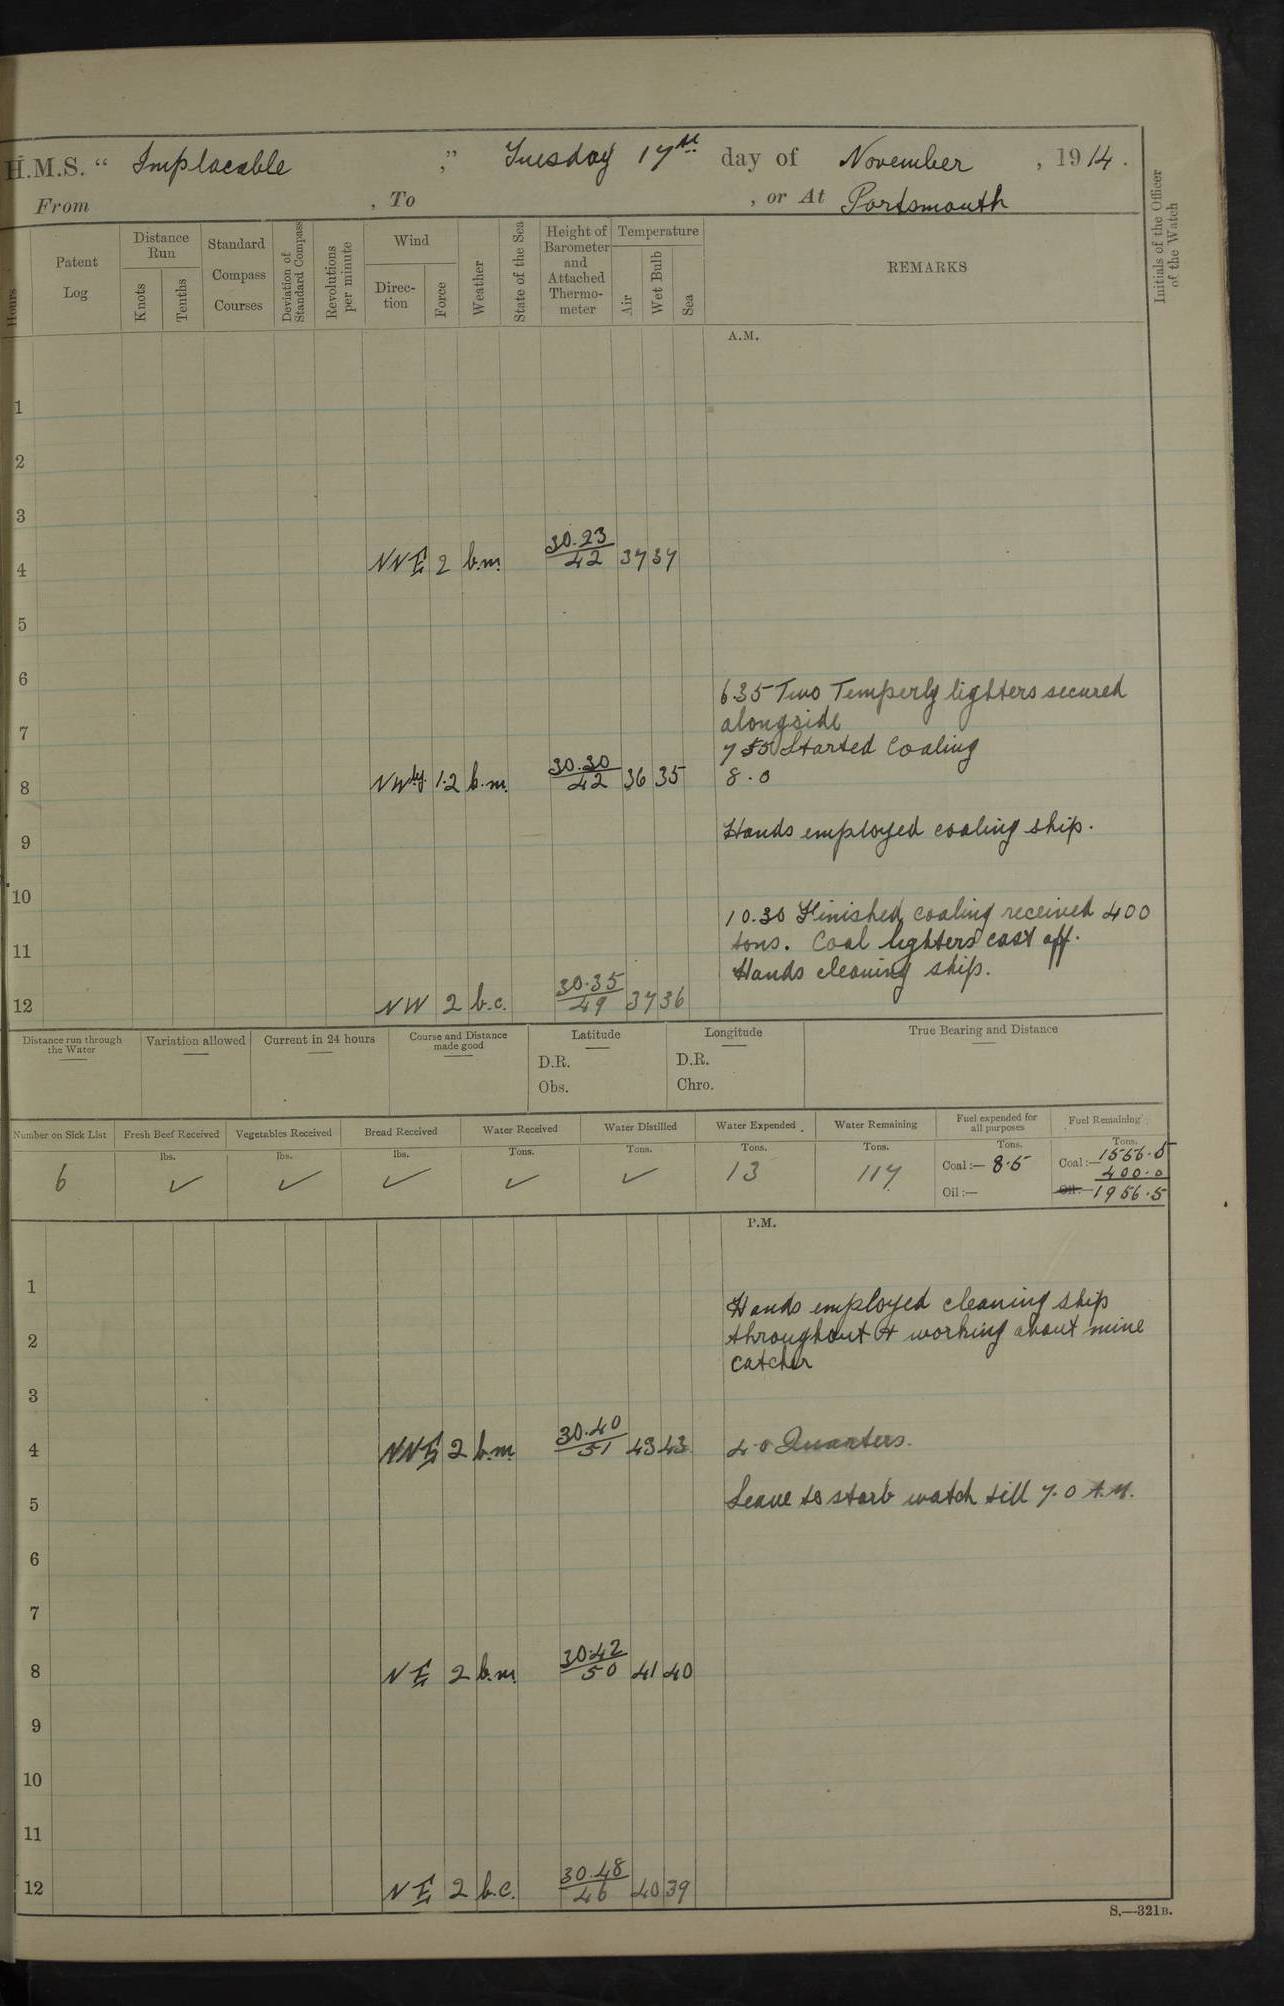 H.M.S. “ Implacable ,” Tuesday 17th day of November , 1914.
From , To , or At Portsmouth
Hours
Patent Log
Distance Run
Knots
Tenths
Standard Compass Courses
Deviation of Standard Compass
Revolutions per minute
Wind
Direction
Force
Weather
State of the Sea
Height of Barometer and Attached Thermometer
Temperature
Air
Wet Bulb
Sea
REMARKS
Initials of the Officer of the Watch
A.M.
1
2
3
4 NNE 2 b.m. 30.23/42 37 37
5
6
635 Two Temperly lighters secured
alongside
7
755 Started Coaling
8 NWly. 1.2 b.m. 30.30/42 36 35 8.0
Hands employed coaling ship.
9
10
10.30 Finished coaling received 400
11 tons. Coal lighters cast off.
Hands cleaning ship.
12 NW 2 b.c. 30.35/49 37 36
Distance run through the Water
Variation allowed
Current in 24 hours
Course and Distance made good
Latitude
D.R.
Obs.
Longitude
D.R.
Chro.
True Bearing and Distance
Number on Sick List
6
Fresh Beef Received
lbs.
✓
Vegetables Received
lbs.
✓
Bread Received
lbs.
✓
Water Received
Tons.
✓
Water Distilled
Tons.
✓
Water Expended
Tons.
13
Water Remaining
Tons.
117
Fuel expended for all purposes
Tons.
Coal:— 8.5
Oil:—
Fuel Remaining
Tons.
Coal:— 1556.5
400.0
Oil:— 1956.5
P.M.
1
Hands employed cleaning ship
2 throughout & working about mine
catcher
3
4 NNE 2 b.m. 30.40/51 43 43 4.0 Quarters.
5 Leave to starb watch till 7.0 A.M.
6
7
8 NE 2 b.m. 30.42/50 41 40
9
10
11
12 NE 2 b.c. 30.48/46 40 39
S.—321B.